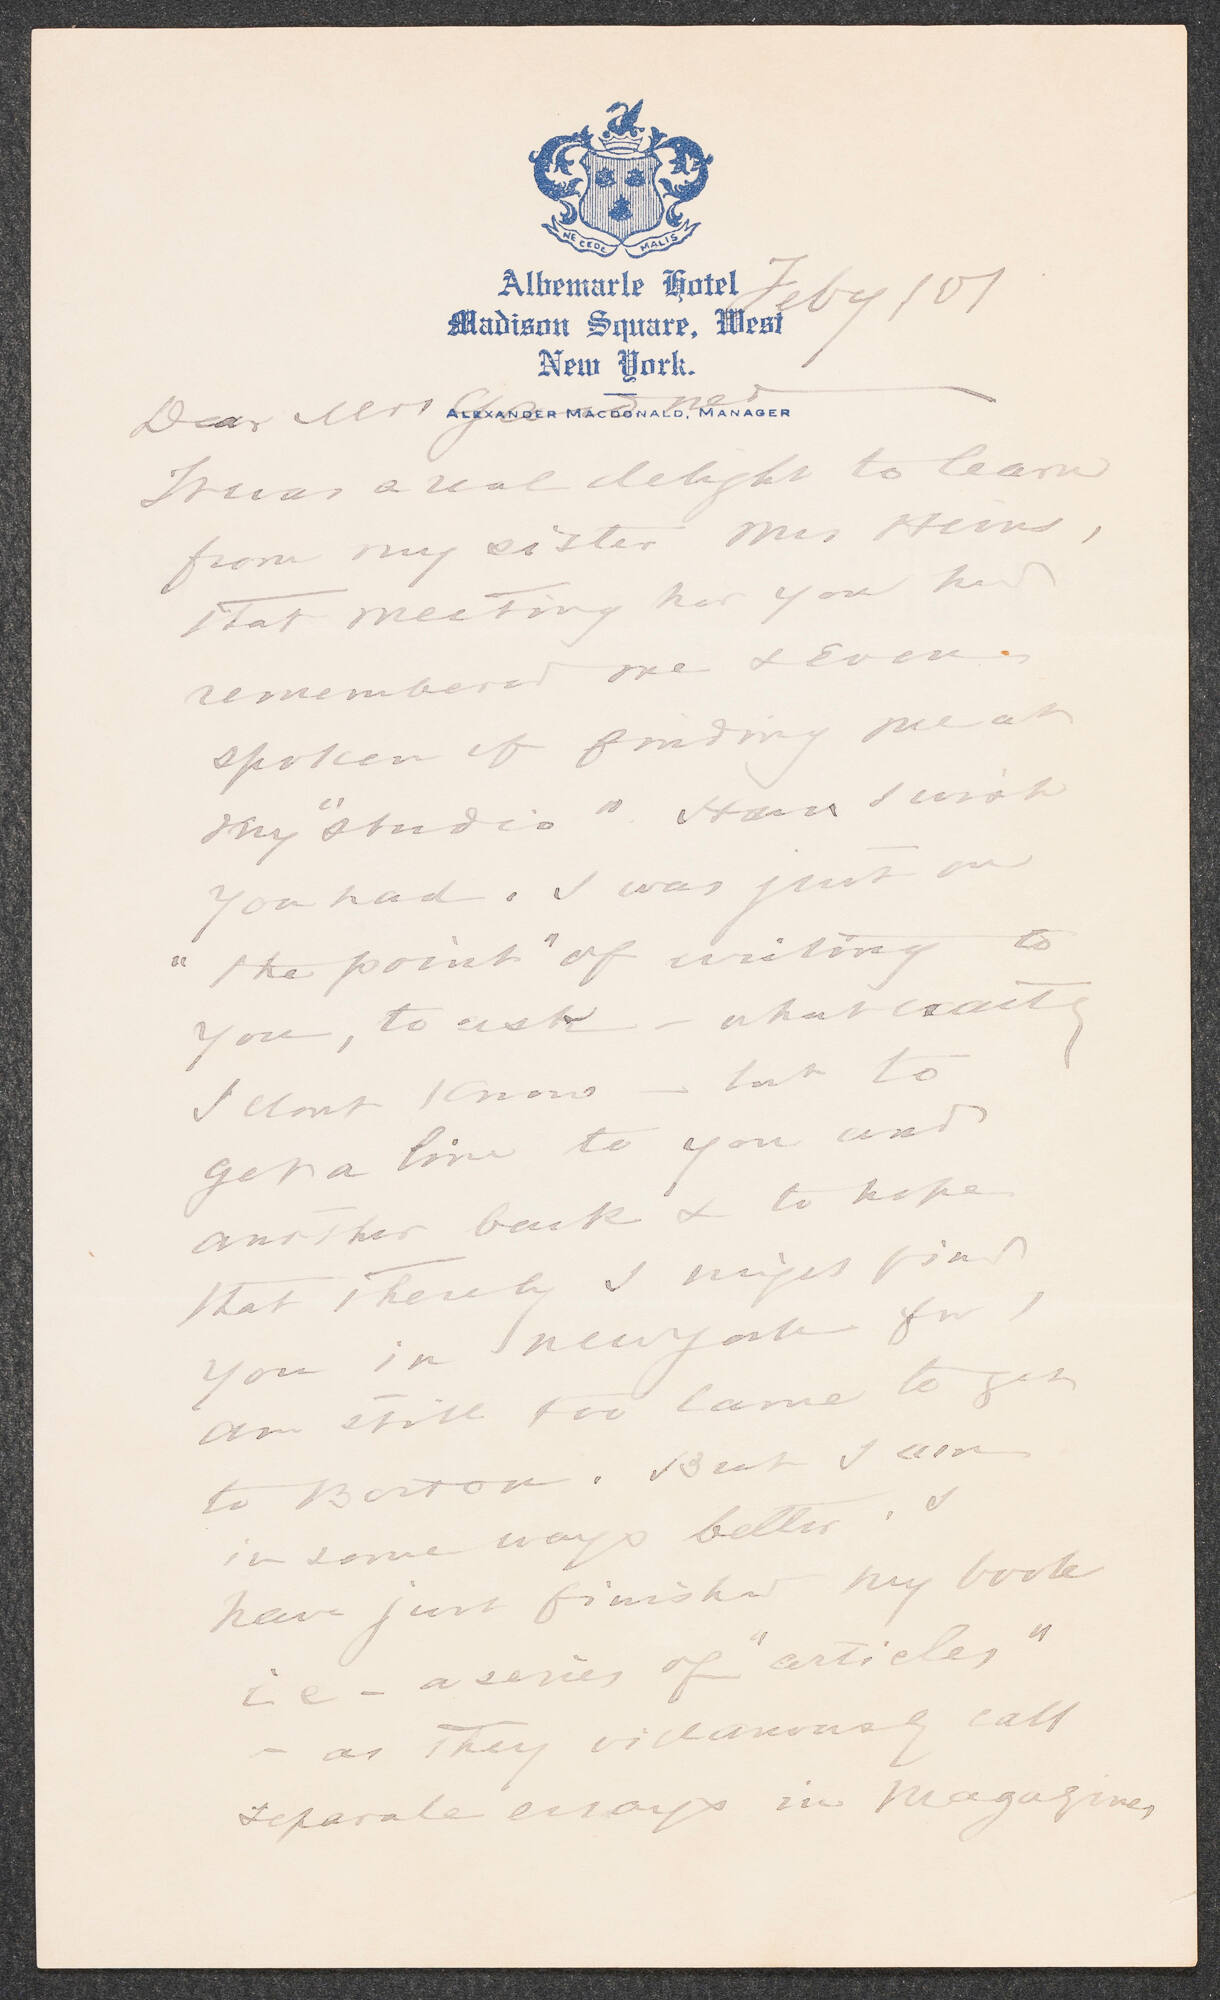 NE CEDE MALIS
Albemarle Hotel
Madison Square, West
New York.
Alexander Macdonald, Manager
Feby 1 01
Dear Mrs Gardner
It was a real delight to learn
from my sister Mrs Heins,
that meeting her you had
remembered me & even
spoken of finding me at
my "studio". How I wish
you had. I was just on
"the point" of writing to
you, to ask – what exactly
I dont know – but to
get a line to you and
another back & to hope
that thereby I might find
you in New York for I
am still too lame to get
to Boston. But I am
in some ways better. I
have just finished my book
i.e – a series of "articles"
– as they villainously call
separate essays in Magazines